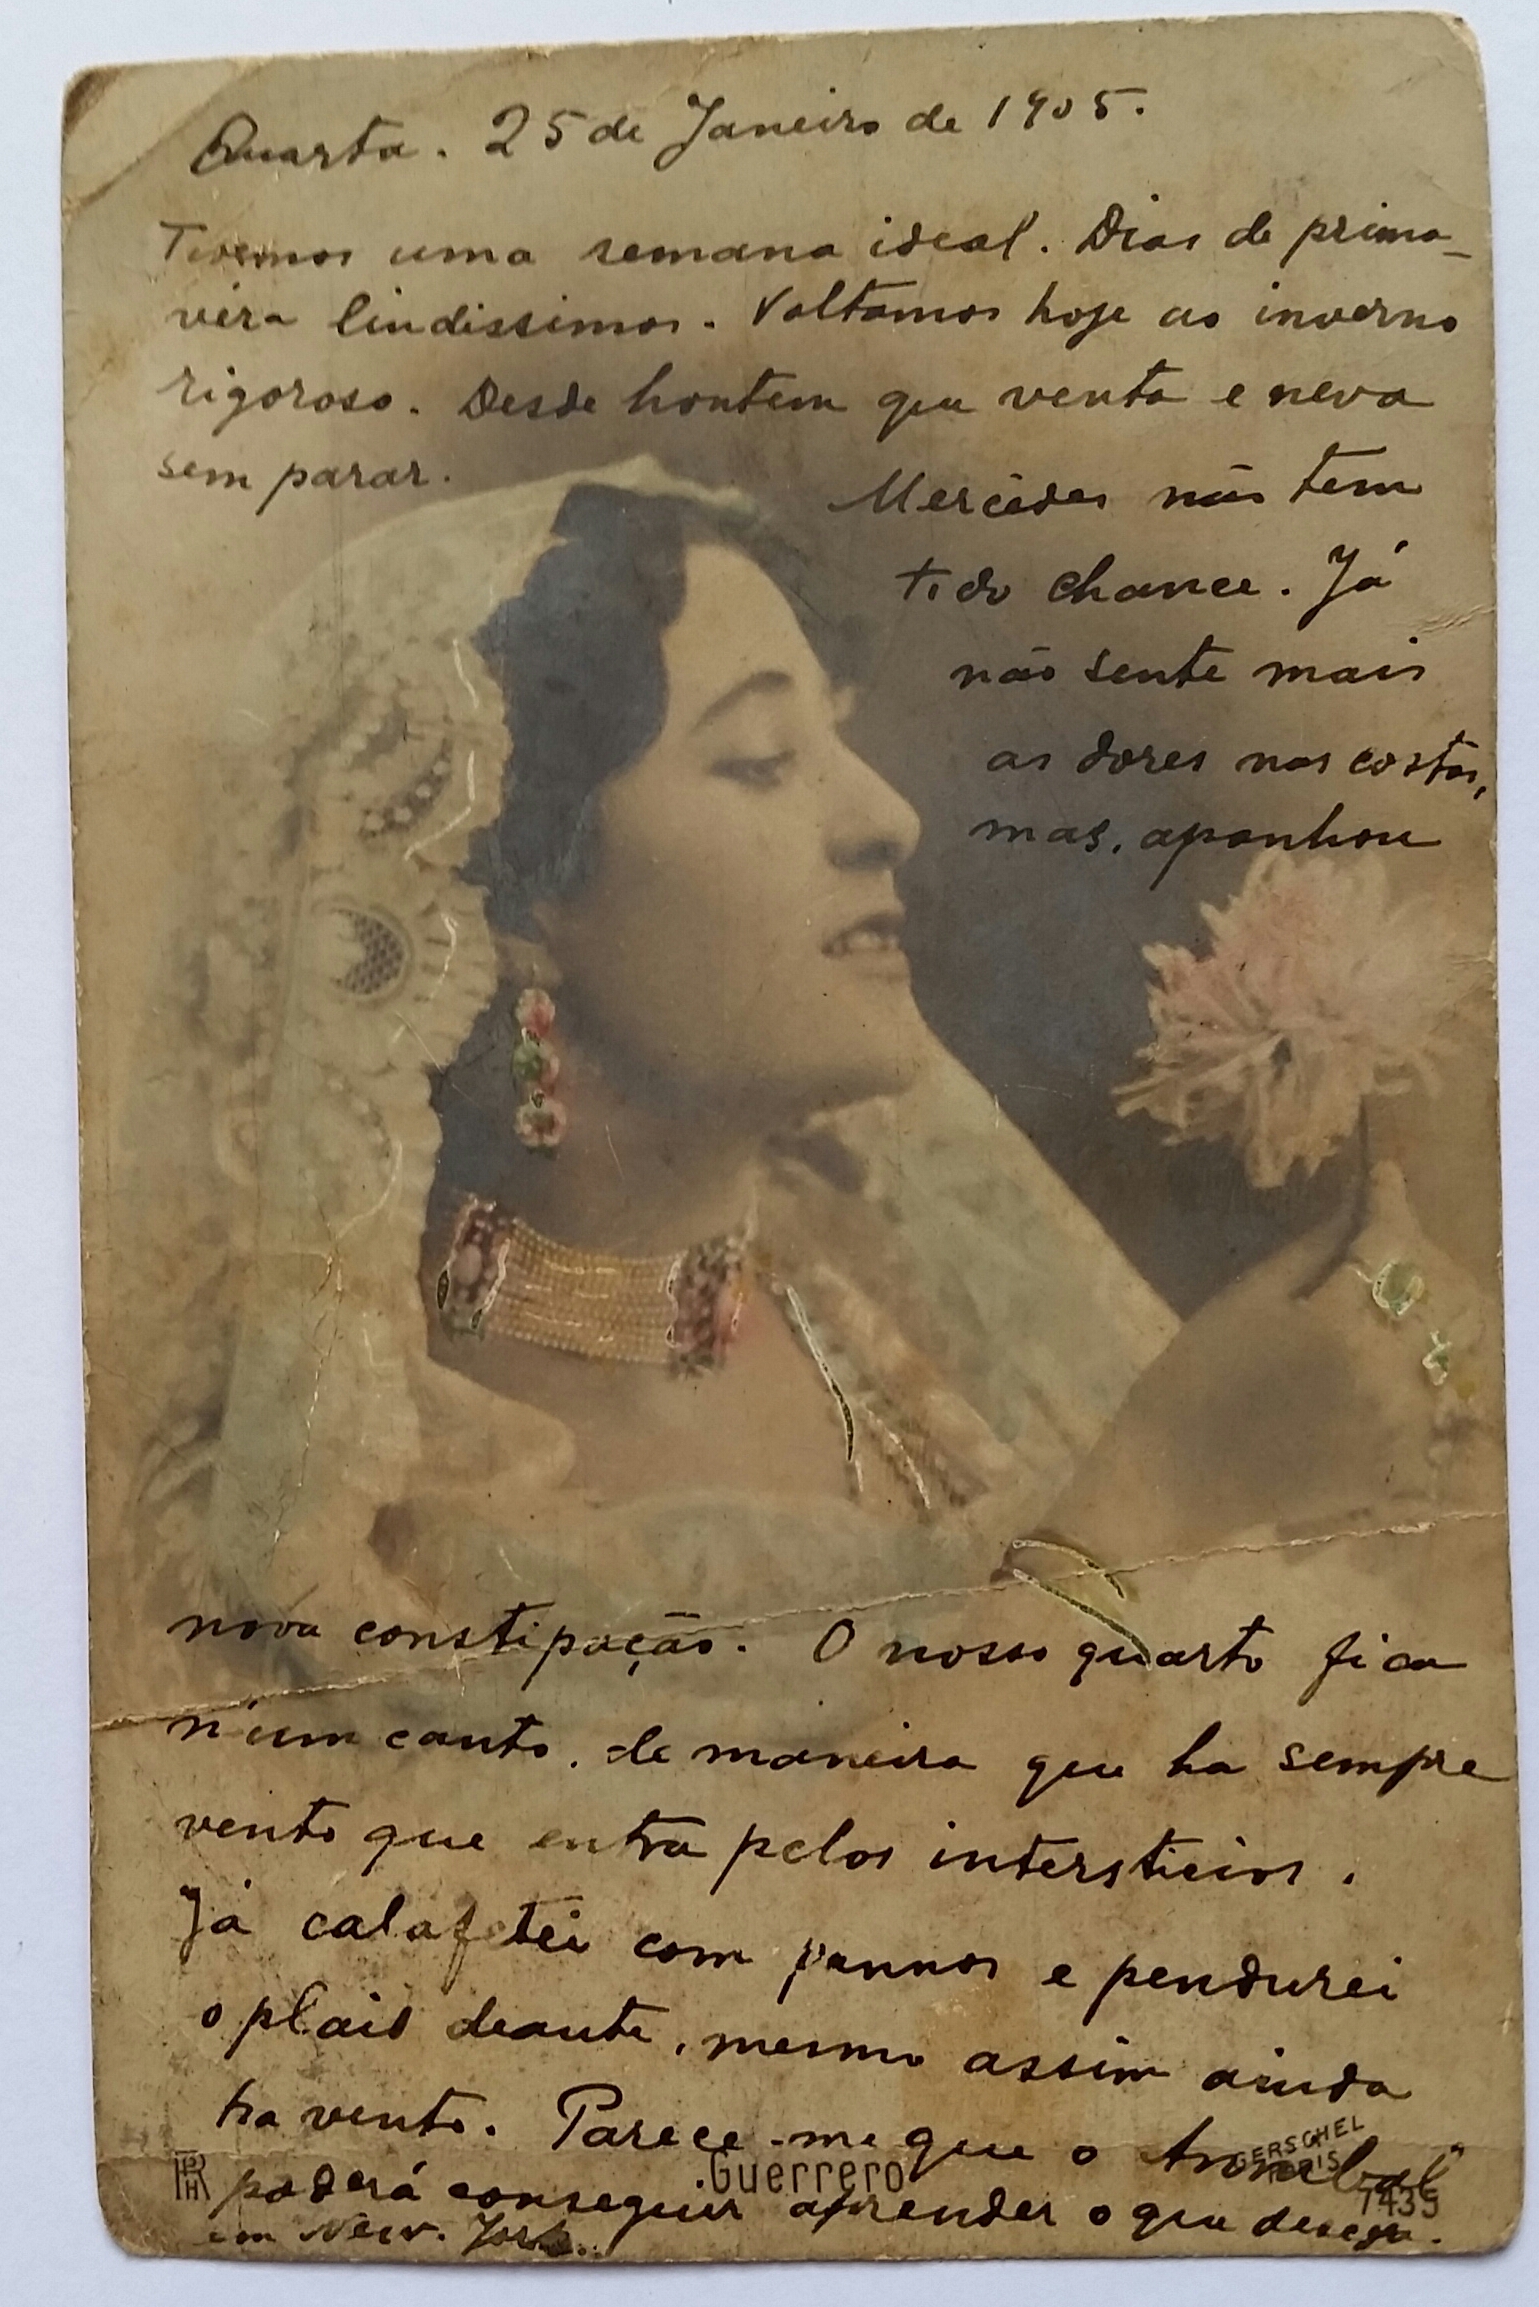 Quarta. 25 de Janeiro de 1905.
Tivemos uma semana ideal. Dias de prima-
vera lindissimos. Voltamos hoje ao inverno
rigoroso. Desde hontem que venta e neva
sem parar.
Mercêdes não tem
tido chance. Já
não sente mais
as dores nas costas,
mas, apanhou
nova constipação. O nosso quarto fica
n'um canto, de maneira que ha sempre
vento que entra pelos intersticios.
Já calafetei com pannos e pendurei
o plaid deante, mesmo assim ainda
ha vento. Parece-me que o Annibal
poderá conseguir aprender o que deseja
em New-York...
RPH
Guerrero
GERSCHEL
PARIS
7435